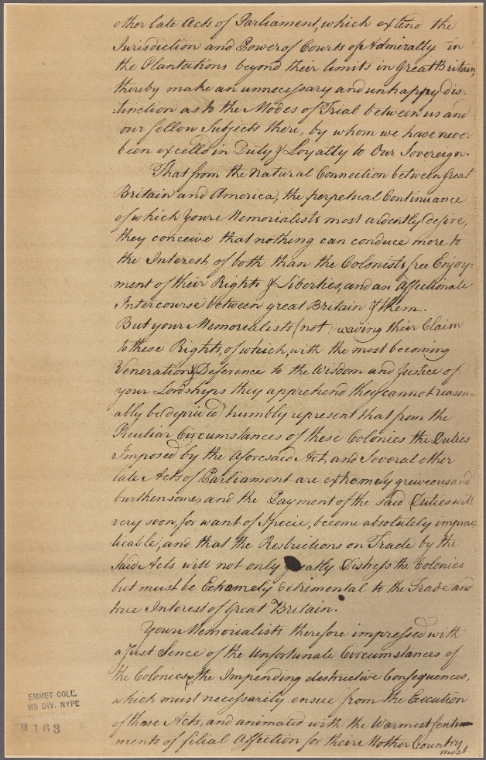 other late Acts of Parliament, which extend the
Jurisdiction and Power of Courts of Admiralty in
the Plantations beyond their limits in Great Britain,
thereby make an unnecessary and unhappy dis-
-tinction as to the Modes of Trial between us and
our fellow Subjects there, by whom we have never
been excelled in Duty & Loyalty to Our Sovereign.
That from the natural Connection between Great
Britain and America, the perpetual Continuance
of which Your Memorialists most ardently desire,
they conceive that nothing can conduce more to
the Interest of both than the Colonists free Enjoy-
ment of their Rights & Liberties, and an affectionate
Intercourse between great Britain & them.
But your Memorialists (not waving their Claim
to these Rights, of which, with the most becoming
Veneration & Deference to the Wisdom and Justice of
your Lordships they apprehend they cannot reason-
ably be deprived) humbly represent that from the
Peculiar Circumstances of these Colonies the Duties
Imposed by the aforesaid Act, and Several other
late Acts of Parliament are extremely grievous and
burthensome, and the Payment of the said Duties will
very soon, for want of Specie, become absolutely imprac-
ticable, and that the Restrictions on Trade by the
Said Acts will not only Distress the Colonies
but must be Extremely detrimental to the Trade and
true Interest of Great Britain.
Your Memorialists therefore impressed with
a Just Sence of the Unfortunate Circumstances of
the Colonies, the Impending destructive Consequences,
which must necessarily ensue from the Execution
of those Acts, and animated with the Warmest Senti-
ments of filial Affection for their Mother Country
most
EMMET COLL.
MS DIV. NYPL
EM 163